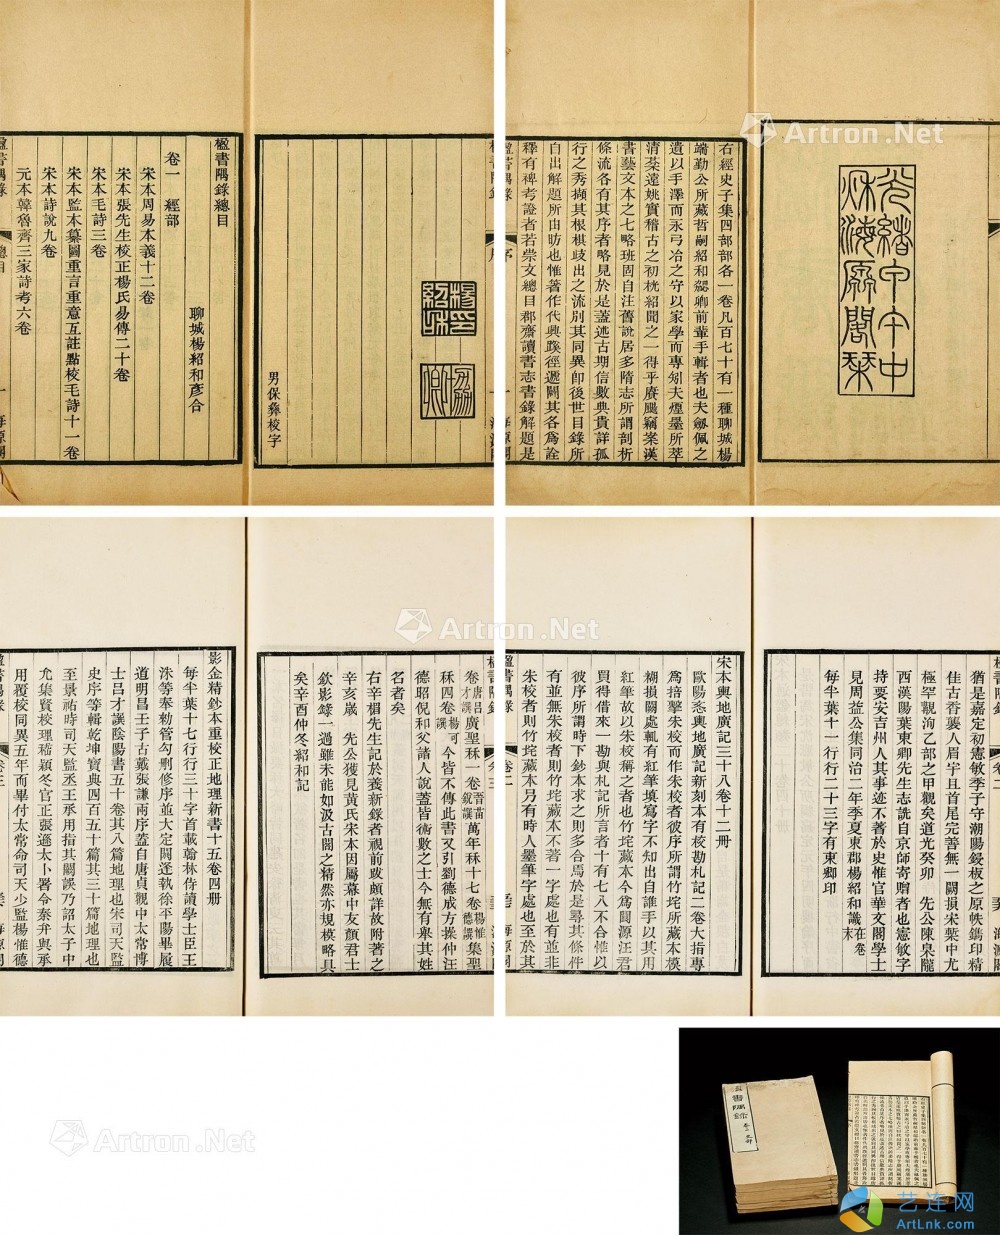 楹書隅錄總目
聊城楊紹和彥合
卷一 經部
宋本周易本義十二卷
宋本張先生校正楊氏易傳二十卷
宋本毛詩三卷
宋本監本纂圖重言重意互註點校毛詩十一卷
宋本詩說九卷
元本韓魯齊三家詩考六卷
男保彝校字
光緒甲午中
秌海原閣栞
右經史子集四部部各一卷凡百七十有一種聊城楊
端勤公所藏哲嗣紹和勰卿前輩手輯者也夫劒佩之
遺以手澤而永弓冶之守以家學而專矧夫煙墨所萃
清棻遠姚實稽古之初桄紹聞之一得乎賡颺竊案漢
書藝文本之七略班固自注舊說居多隋志所謂剖析
條流各有其序者略見於是蓋述古期信數典貴詳孤
行之秀擷其根棋歧出之流別其同異卽後世目錄所
自出解題所由昉也惟著作代興蹊徑遞闢其各爲詮
釋有裨考證者若崇文總目郡齋讀書志書錄解題是
影金精鈔本重校正地理新書十五卷四册
每半葉十七行行三十字首載翰林侍讀學士臣王
洙等奉勑管勾刪修序並大定闕逢執徐平陽畢履
道明昌壬子古戴張謙兩序蓋自唐貞觀中太常博
士呂才譔陰陽書五十卷其八篇地理也宋司天監
史序等輯乾坤寶典四百五十篇其三十篇地理也
至景祐時司天監丞王承用指其闕誤乃詔太子中
允集賢校理嵇穎冬官正張遜太卜署令秦弁與承
用覆校同異五年而畢付太常命司天少監楊惟德
卷唐呂才譔廣聖秝一卷晉苗銳譔萬年秝十七卷楊惟德譔集聖
秝四卷楊可譔今皆不傳此書又引劉德成方操仲汪
德昭倪和父諸人說蓋皆術數之士今無有舉其姓
名者矣
右辛楣先生記於養新錄者視前跋頗詳故附著之
辛亥歲 先公獲見黃氏宋本因屬幕中友顏君士
欽影錄一過雖未能如汲古閣之精然亦規模略具
矣辛酉仲冬紹和記
宋本輿地廣記三十八卷十二冊
歐陽忞輿地廣記新刻本有校勘札記二卷大指專
爲掊擊朱校而作朱校者彼序所謂竹垞所藏本模
糊損闕處輒有紅筆塡寫字不知出自誰手以其用
紅筆故以朱校稱之者也竹垞藏本今爲閬源汪君
買得借來一勘與札記所言者十有七八不合惟以
彼序所謂時下鈔本求之則多合焉於是尋其條件
有並無朱校者則竹垞藏本不著一字處也有並非
朱校者則竹垞藏本另有時人墨筆字處也至於其
猶是嘉定初憲敏季子守潮陽鋟板之原帙鐫印精
佳古香襲人眉宇且首尾完善無一闕損宋槧中尤
極罕覯洵乙部之甲觀矣道光癸卯 先公陳臬隴
西漢陽葉東卿先生志詵自京師寄贈者也憲敏字
持要安吉州人其事迹不著於史惟官華文閣學士
見周益公集同治二年季夏東郡楊紹和識在卷末
每半葉十一行行二十三字有東卿印
Artron.Net
Artron.Net
Artron.Net
艺连网
ArtLnk.com